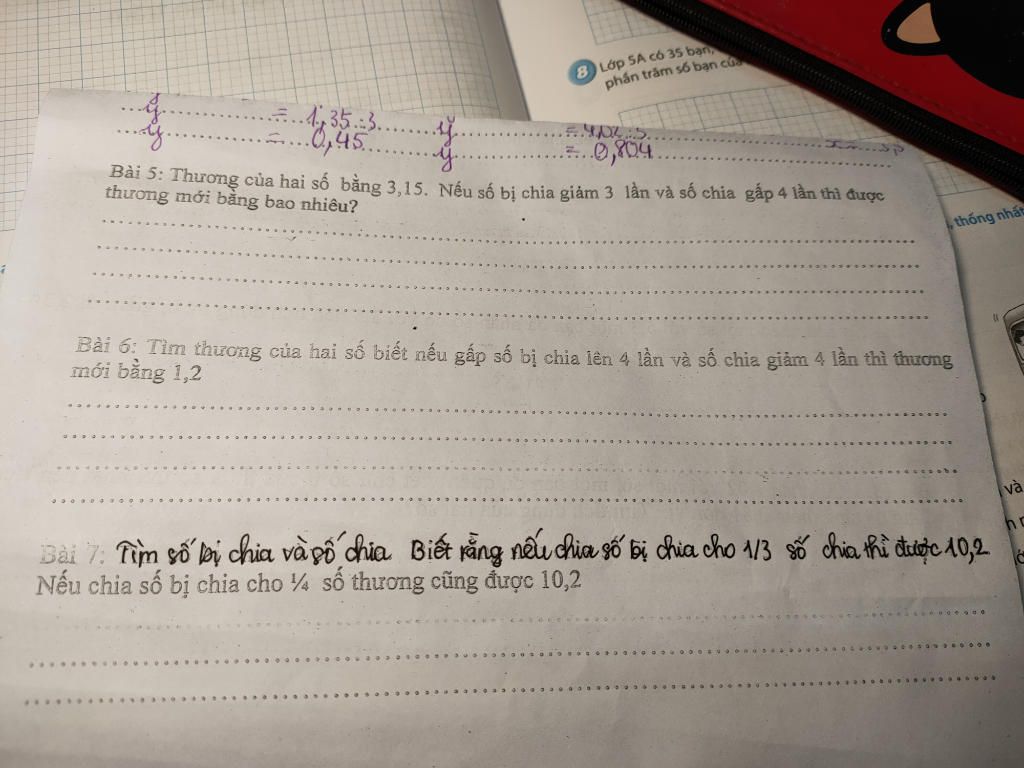 8 Lớp 5A có 35 bạn,
phần trăm số bạn của
y = 1,35 : 3 y
y = 0,45 y = 0,804
Bài 5: Thương của hai số bằng 3,15. Nếu số bị chia giảm 3 lần và số chia gấp 4 lần thì được
thương mới bằng bao nhiêu?
, thống nhất
Bài 6: Tìm thương của hai số biết nếu gấp số bị chia lên 4 lần và số chia giảm 4 lần thì thương
mới bằng 1,2
và
Bài 7: Tìm số bị chia và số chia Biết rằng nếu chia số bị chia cho 1/3 số chia thì được 10,2
Nếu chia số bị chia cho ¼ số thương cũng được 10,2